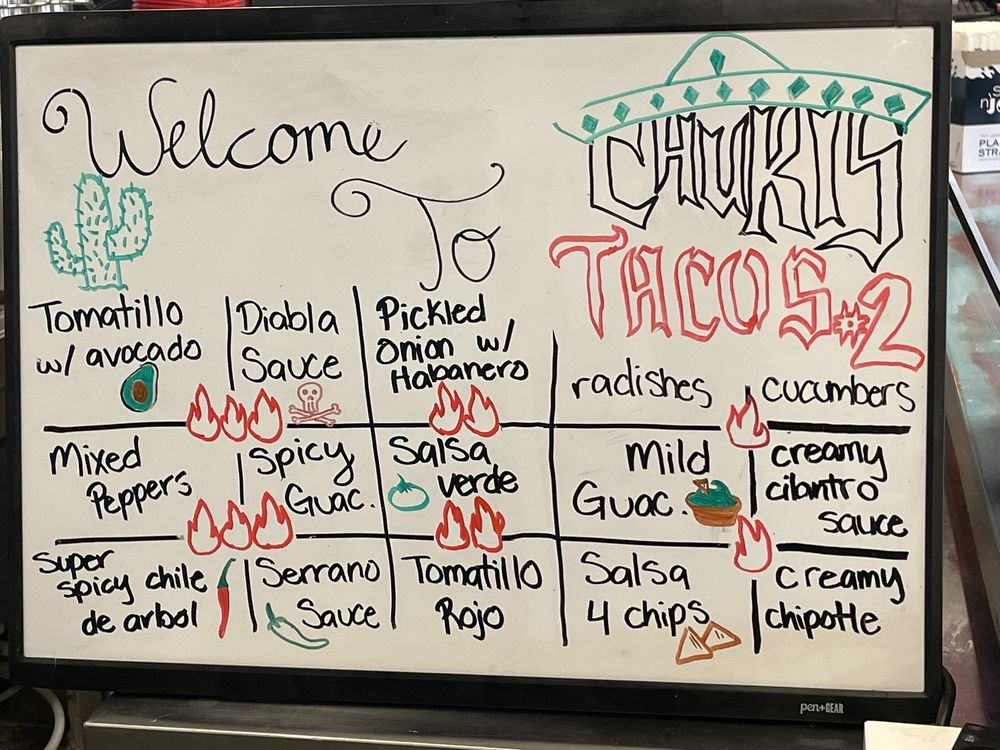 Welcome
To
CHUKIS
TACOS #2
Tomatillo
w/ avocado
Diabla
Sauce
Pickled
Onion w/
Habanero
radishes
cucumbers
Mixed
Peppers
Spicy
Guac.
Salsa
verde
Mild
Guac.
creamy
cilantro
sauce
Super
spicy chile
de arbol
Serrano
Sauce
Tomatillo
Rojo
Salsa
4 chips
creamy
chipotle
pen+GEAR